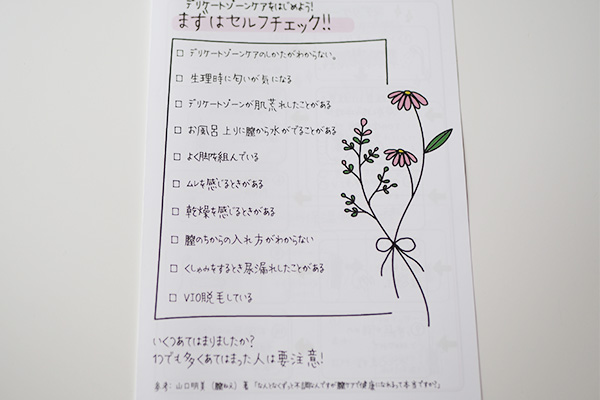 デリケートゾーンケアをはじめよう!
まずはセルフチェック!!
□ デリケートゾーンケアのしかたがわからない。
□ 生理時に匂いが気になる
□ デリケートゾーンが肌荒れしたことがある
□ お風呂上りに膣から水がでることがある
□ よく脚を組んでいる
□ ムレを感じるときがある
□ 乾燥を感じるときがある
□ 膣のちからの入れ方がわからない
□ くしゃみをするとき尿漏れしたことがある
□ VIO脱毛している
いくつあてはまりましたか?
1つでも多くあてはまった人は要注意!
参考: 山口明美 (膣ねえ) 著 「なんとなくずっと不調なんですが膣ケアで健康になれるって本当ですか?」